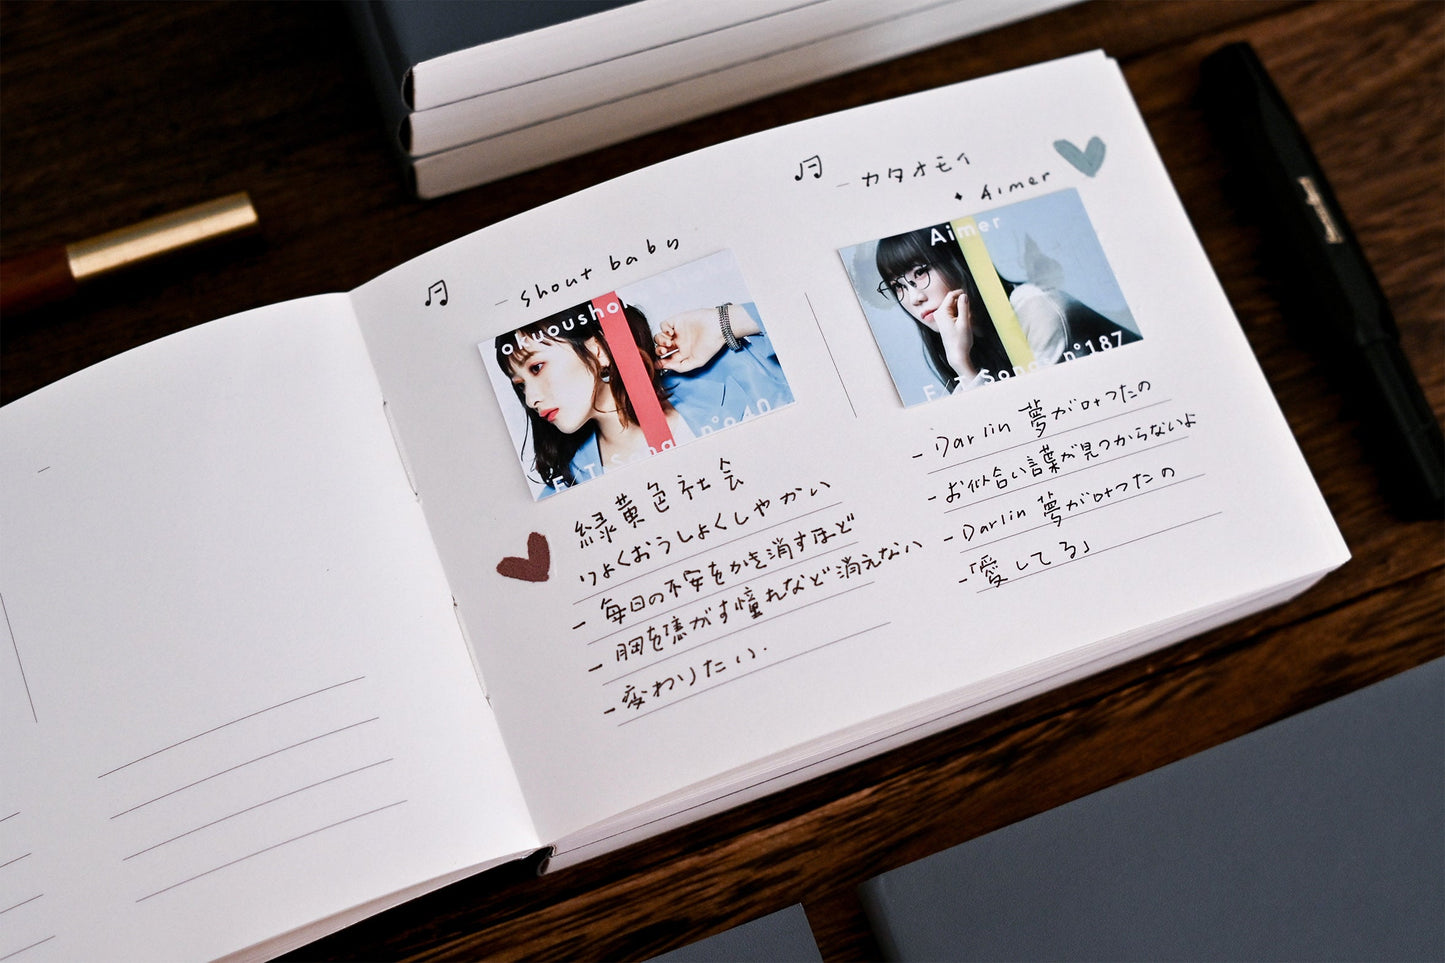 shout baby
okuousho
F/T Song n°040
緑黄色社会
りょくおうしょくしゃかい
- 毎日の不安をかき消すほど
- 胸を焦がす憧れなど消えない
- 変わりたい.
カタオモイ
Aimer
Aimer
F/T Song n°187
- Darlin 夢が叶ったの
- お似合い言葉が見つからないよ
- Darlin 夢が叶ったの
-「愛してる」